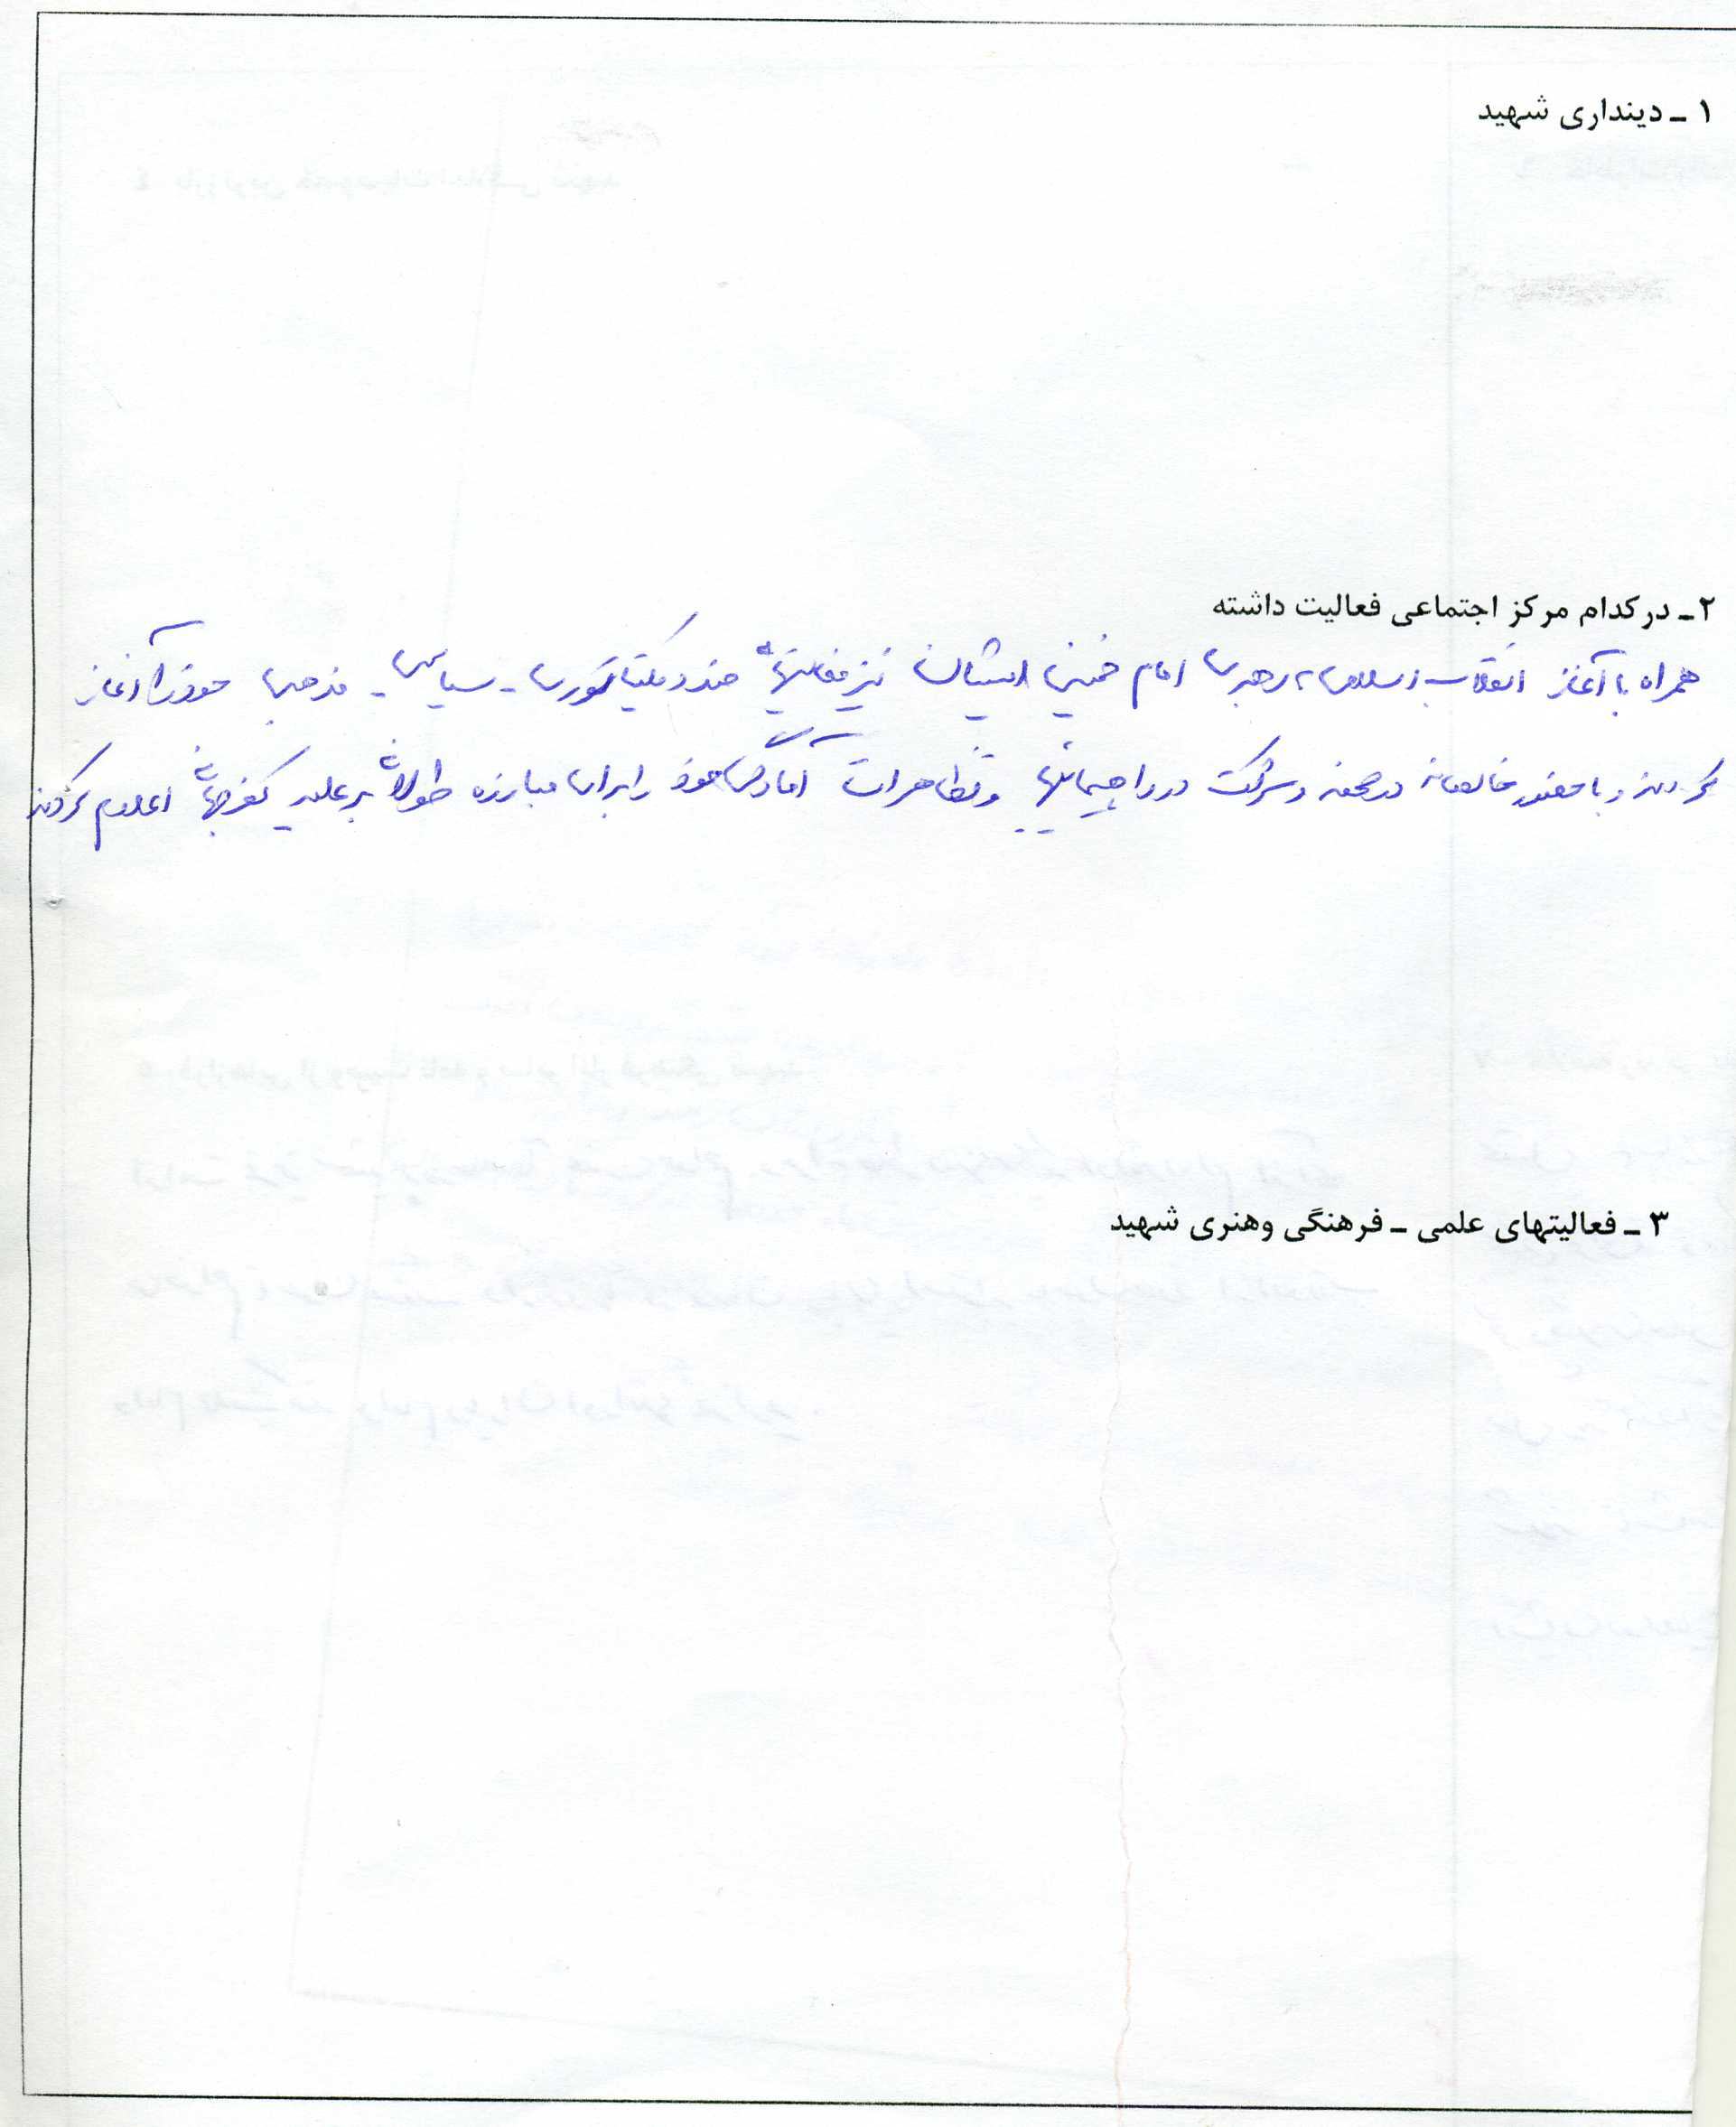 ۱ ـ دینداری شهید
۲ ـ در کدام مرکز اجتماعی فعالیت داشته
همراه با آغاز انقلاب اسلامی به رهبری امام خمینی ایشان نیز فعالیتهای ضد دیکتاتوری ـ سیاسی ـ مذهبی خود را آغاز
کردند و با حضور خالصانه در صحنه و شرکت در راهپیمائیها و تظاهرات آمادگی خود را برای مبارزه طولانی بر علیه کفر جهانی اعلام کردند
۳ ـ فعالیتهای علمی ـ فرهنگی وهنری شهید